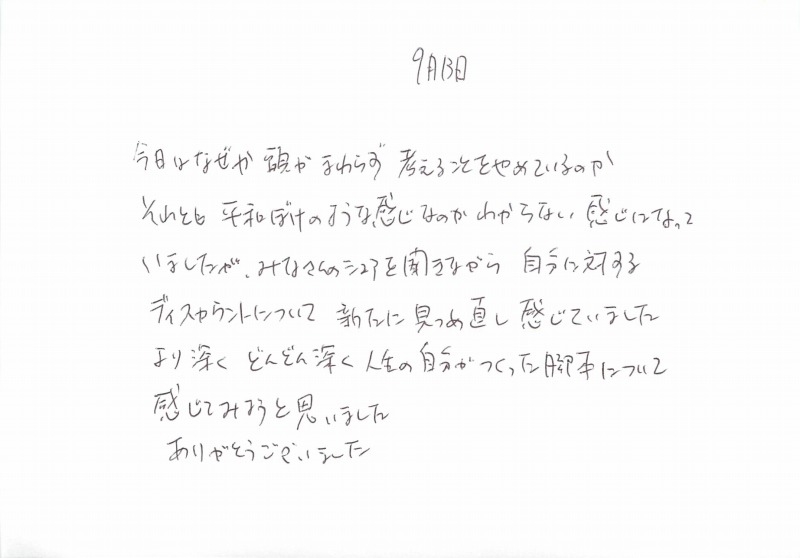 9月13日
今日はなぜか 頭が まわらず 考えることをやめているのか
それとも 平和ぼけのような感じなのか わからない 感じになって
いましたが、みなさんのシェアを聞きながら 自分に対する
ディスカウントについて 新たに見つめ直し 感じていました
より深く どんどん深く 人生の自分がつくった脚本について
感じてみようと思いました
ありがとうございました